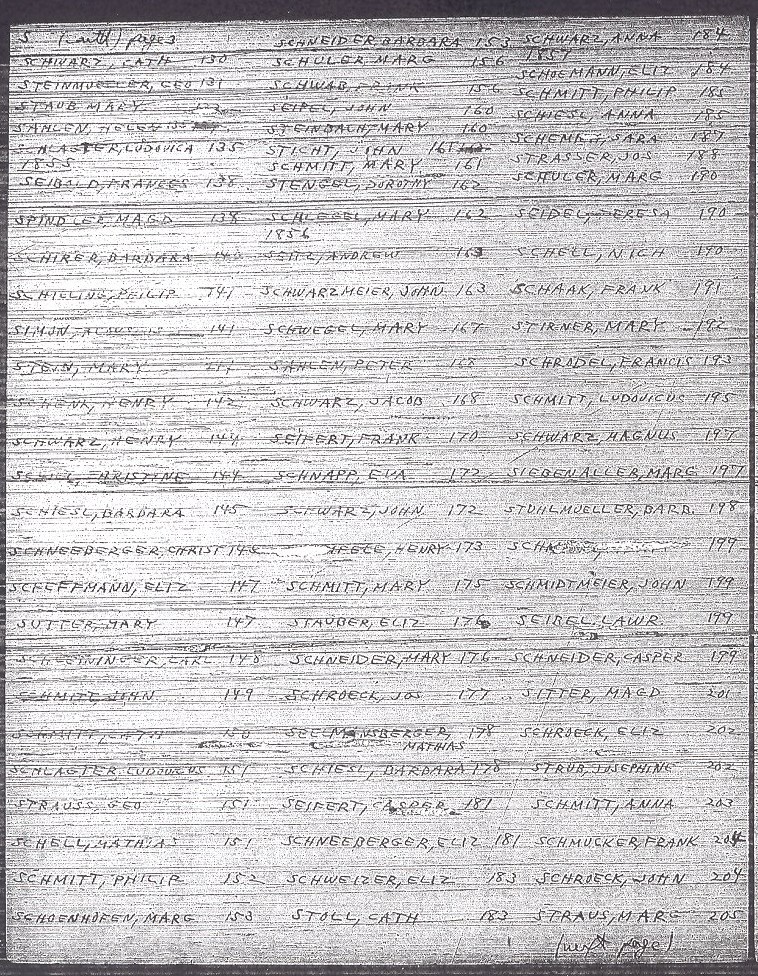 S (contd) pages
SCHWARZ, CATH 130
STEINMUELLER, GEO 131
STAUB MARY
SAHLEN, HELEN
SCHLAGTER, LUDOVICA 135
1855
SEIBOLD, FRANCES 138
SPINDLER, MAGD 138
SCHIRER, BARBARA 140
SCHILLING, PHILIP 141
SIMON, 141
STEIN, MARY
SCHENK, HENRY 142
SCHWARZ, HENRY 144
CHRISTINE 144
SCHIESL, BARBARA 145
SCHNEEBERGER, CHRIST 145
SCHEFFMANN, ELIZ 147
SUTTER, MARY 147
SCHREININGER, CARL 148
SCHMITT, JOHN 149
SCHMITT, CATH 150
SCHLAGTER LUDOVICUS 151
STRAUSS, GEO 151
SCHELL, MATHIAS 151
SCHMITT, PHILIP 152
SCHOENHOFEN, MARG 153
SCHNEIDER, BARBARA 153
SCHULER, MARG 156
SCHWAB, FRANK 156
SEIPEL, JOHN 160
STEINBACH, MARY 160
STICHT, JOHN 161
SCHMITT, MARY 161
STENGEL, DOROTHY 162
SCHLEGEL, MARY 162
1856
SEITZ, ANDREW 163
SCHWARZMEIER, JOHN 163
SCHWEGEL, MARY 167
SAHLEN, PETER 168
SCHWARZ, JACOB 168
SEIFERT, FRANK 170
SCHNAPP, EVA 172
SCHWARZ, JOHN 172
HENRY 173
SCHMITT, MARY 175
STAUBER, ELIZ 176
SCHNEIDER, MARY 176
SCHROECK, JOS 177
SEELMANSBERGER, 178
MATHIAS
SCHIESL, BARBARA 178
SEIFERT, CASPER 181
SCHNEEBERGER, ELIZ 181
SCHWEIZER, ELIZ 183
STOLL, CATH 183
SCHWARZ, ANNA 184
1857
SCHOEMANN, ELIZ 184
SCHMITT, PHILIP 185
SCHIESL, ANNA 185
SCHENK, SARA 187
STRASSER, JOS 188
SCHULER, MARG 190
SEIDEL, TERESA 190
SCHELL, NICH 190
SCHAAK, FRANK 191
STIRNER, MARY 192
SCHRODEL, FRANCIS 193
SCHMITT, LUDOVICUS 195
SCHWARZ, MAGNUS 197
SIEBENALLER, MARG 197
STUHLMUELLER, BARB. 198
199
SCHMIDTMEIER, JOHN 199
SEIBEL, LAWR. 199
SCHNEIDER, CASPER 199
SITTER, MAGD 201
SCHROECK, ELIZ 202
STRUB, JOSEPHINE 202
SCHMITT, ANNA 203
SCHMUCKER, FRANK 204
SCHROECK, JOHN 204
STRAUS, MARG 205
(next page)